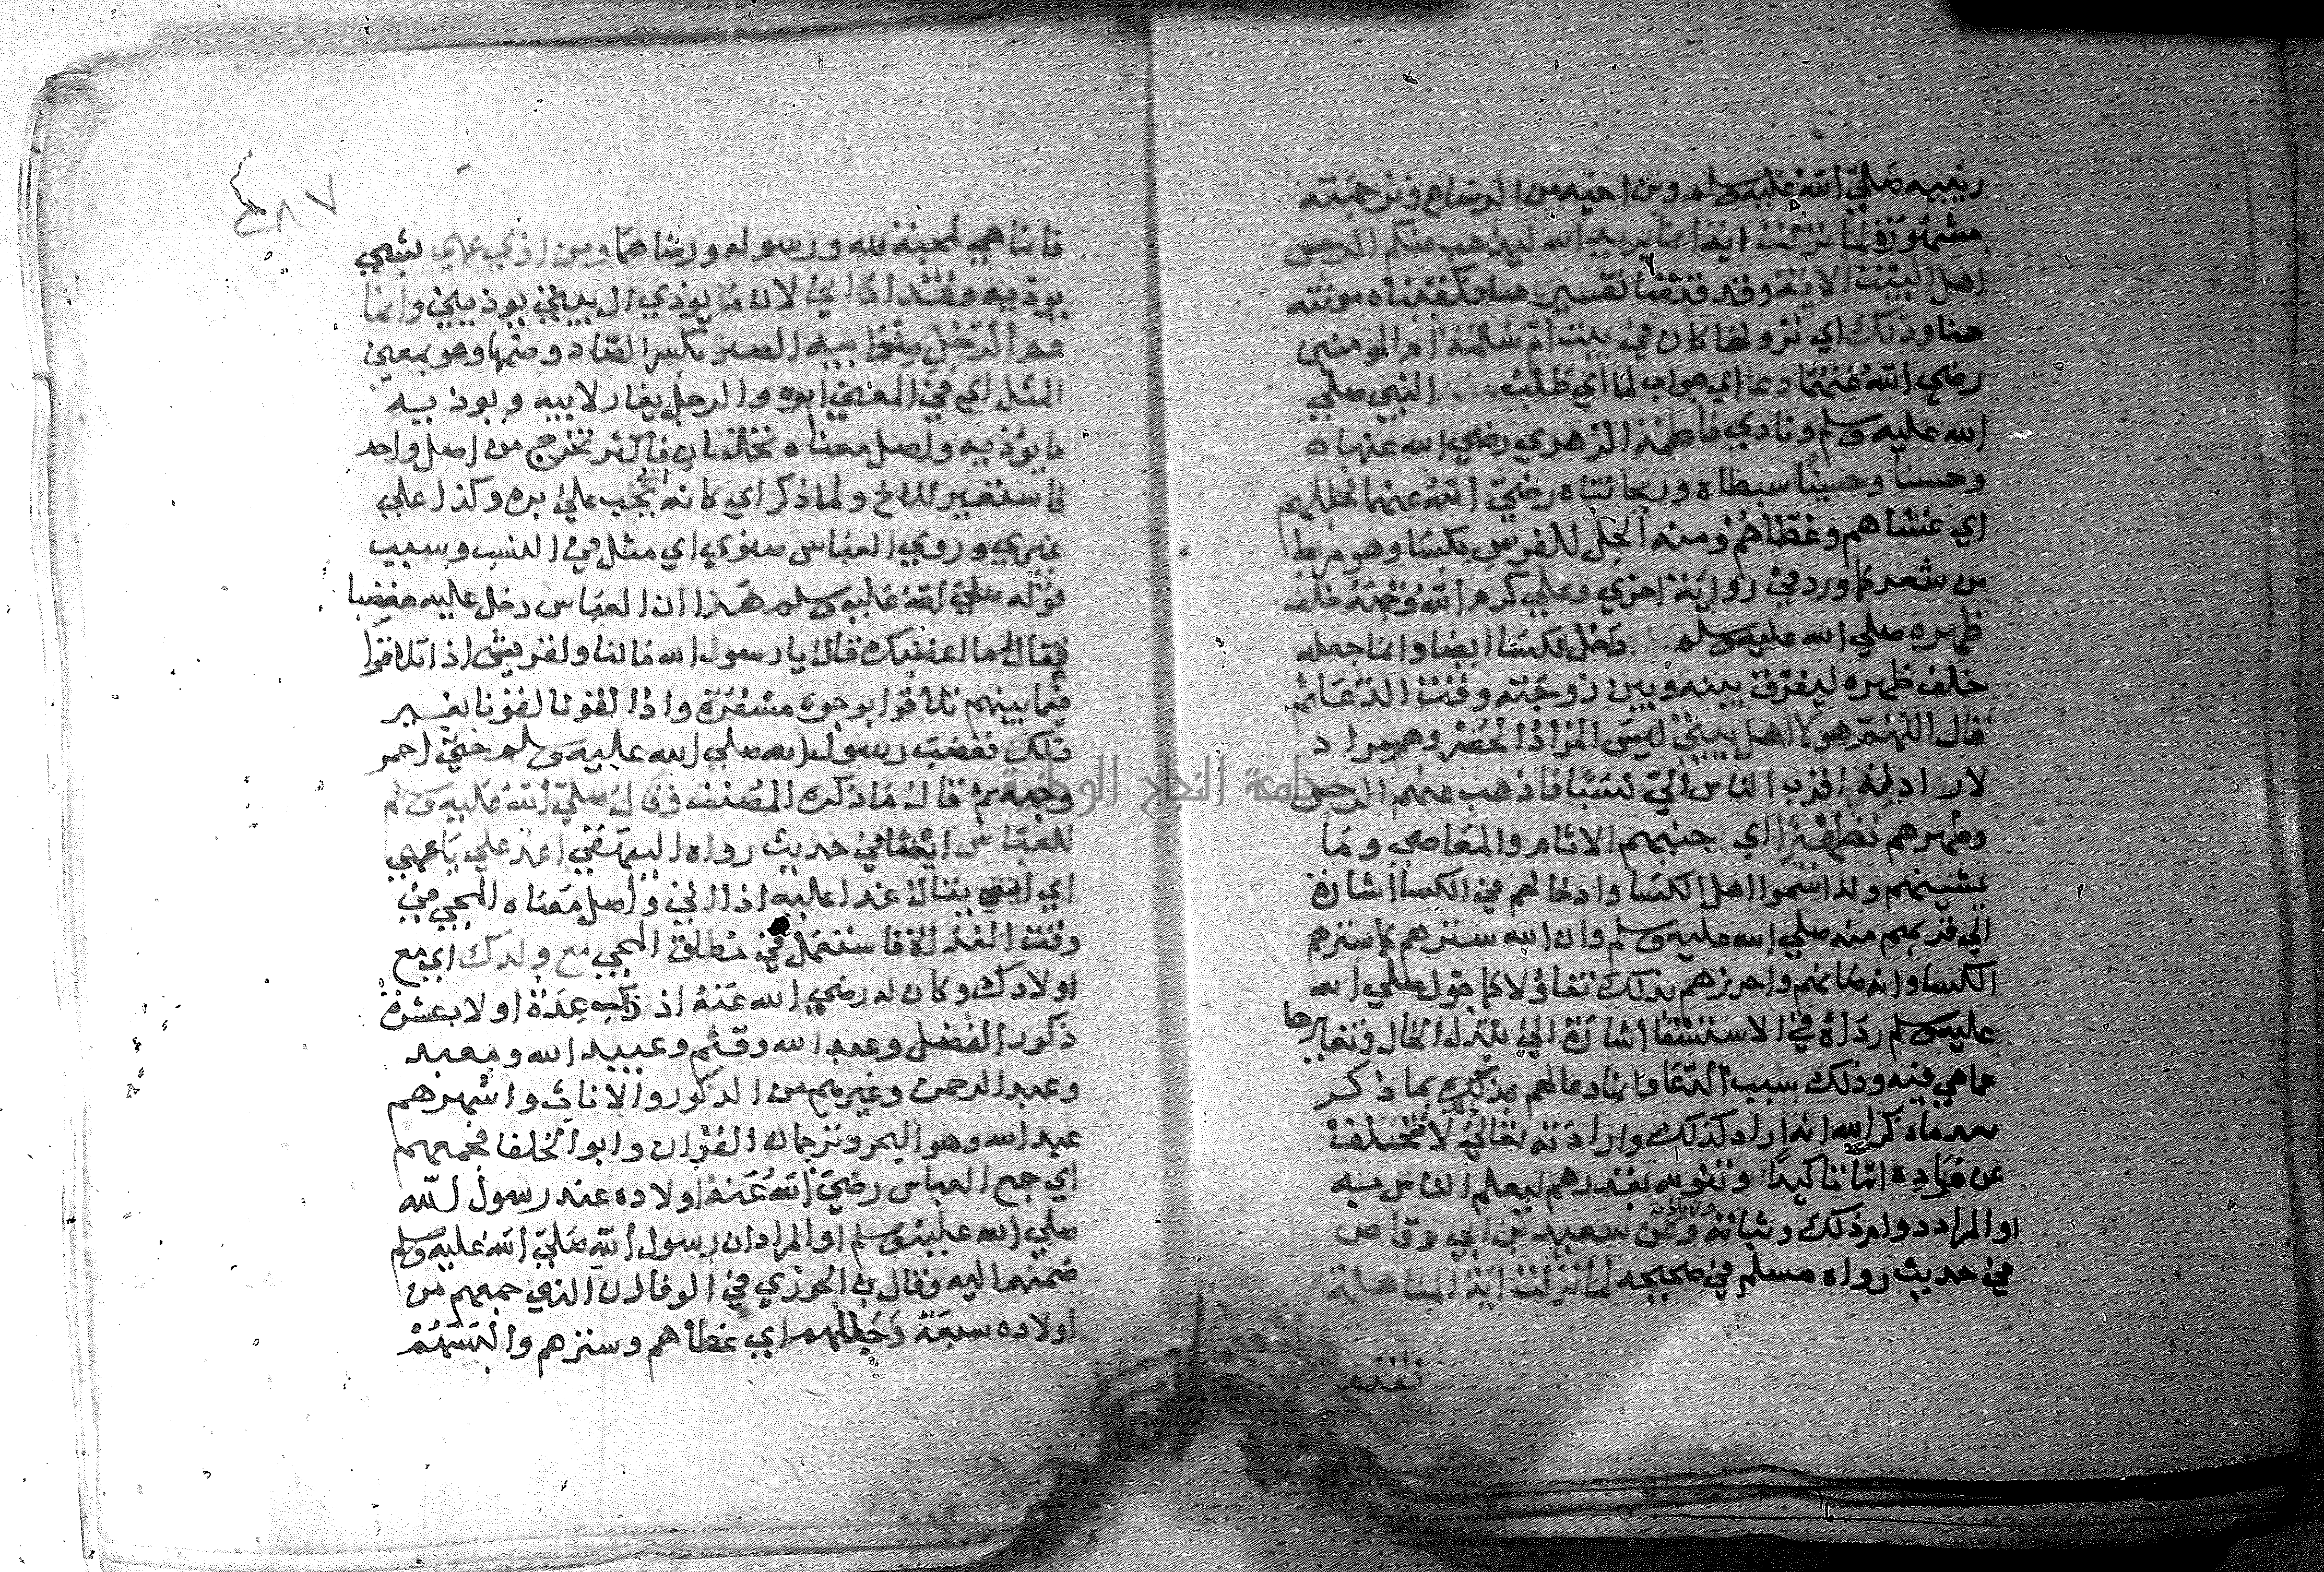 ربيبه صلي الله عليه وسلم وبن اخيه من الرضاع وترجمته
مشهورة لما نزلت اية انما يريد الله ليذهب عنكم الرجس
اهل البيت الاية وقد قدمنا تفسيرها فكفتيناه مونته
هنا وذلك اي نزولها كان في بيت ام سلمة ام المومنين
رضي الله عنهما دعا اي جواب لما اي طلب النبي صلي
الله عليه وسلم ونادي فاطمة الزهري رضي الله عنها
وحسنا وحسينا سبطاه وريحانتاه رضي الله عنهما فجللهم
اي غشاهم وغطاهم ومنه الجل للفرس بكسا وهو مرط
من شعر كما ورد في رواية اخري وعلي كرم الله وجهه خلف
ظهره صلي الله عليه وسلم داخل الكسا ايضا وانما جعله
خلف ظهره ليفرق بينه وبين زوجته وقت الدعا ثم
قال اللهم هولا اهل بيتي ليس المراد الحصر وهو مراد
لاراد لمه اقرب الناس الي نسبا فاذهب عنهم الرجس
وطهرهم تطهيرا اي جنبهم الاثام والمعاصي وما
يشينهم ولذا سموا اهل الكسا وادخالهم في الكسا اشارة
الي قربهم منه صلي الله عليه وسلم وان الله سترهم كما سترهم
الكسا وانه ضامنهم واحرزهم بذلك تفاؤلا كما حول صلي الله
عليه وسلم رداه في الاستسقا اشارة الي تبدل الحال وتغيرها
عما هي فيه وذلك سبب الدعا وانما دعا لهم بذلك بما ذكر
بعد ما ذكر الله انه اراد كذلك وارادته تعالي لا تتخلف
عن مراده اما تاكيدا وتنويه بقدرهم ليعلم الناس به
او المراد دوام ذلك وثباته وعن سعيد بن ابي وقاص
في حديث رواه مسلم في صحيحه لما نزلت اية المباهلة
تقدم
٤٨٧
فانما هي لمحبة لله ورسوله ورضاهما ومن اذي عمي بشي
يوذيه فقد اذاني لان ما يوذي ال بيتي يوذيني وانما
عم الرجل صنو ابيه الصنو بكسر الصاد وضمها وهو بمعني
المثل اي في المعني ابوه والرجل يغار لابيه ويوذيه
ما يوذيه واصل معناه نخلتان فاكثر تخرج من اصل واحد
فاستعير للاخ ولما ذكر اي كانه يجب علي بره وكذا علي
غيري وروي العباس صنوي اي مثل في النسب وسبب
قوله صلي الله عليه وسلم هذا ان العباس دخل عليه مغضبا
فقال ما اغضبك قال يا رسول الله مالنا ولقريش اذا تلاقوا
فيما بينهم تلاقوا بوجوه مسفرة واذا لقونا لقونا بغير
ذلك فغضب رسول الله صلي الله عليه وسلم حتي احمر
وجهه ثم قال ما ذكره المصنف وقال صلي الله عليه وسلم
للعباس ايضا في حديث رواه البيهقي اغد علي يا عمي
اي ايتني يقال غدا عليه اذا اتي واصل معناه المجي في
وقت الغداة فاستعمل في مطلق المجي مع ولدك اي مع
اولادك وكان له رضي الله عنه اذ ذاك عدة اولاد عشرة
ذكور الفضل وعبد الله وقثم وعبيد الله ومعبد
وعبد الرحمن وغيرهم من الذكور والاناث واشهرهم
عبد الله وهو البحر وترجمان القران وابو الخلفا فجمعهم
اي جمع العباس رضي الله عنه اولاده عند رسول الله
صلي الله عليه وسلم او المراد ان رسول الله صلي الله عليه وسلم
ضمهم اليه وقال بن الجوزي في الوفا ان الذي جمعهم من
اولاده سبعة وجللهم اي غطاهم وسترهم والبسهم
جامعة النجاح الوطنية